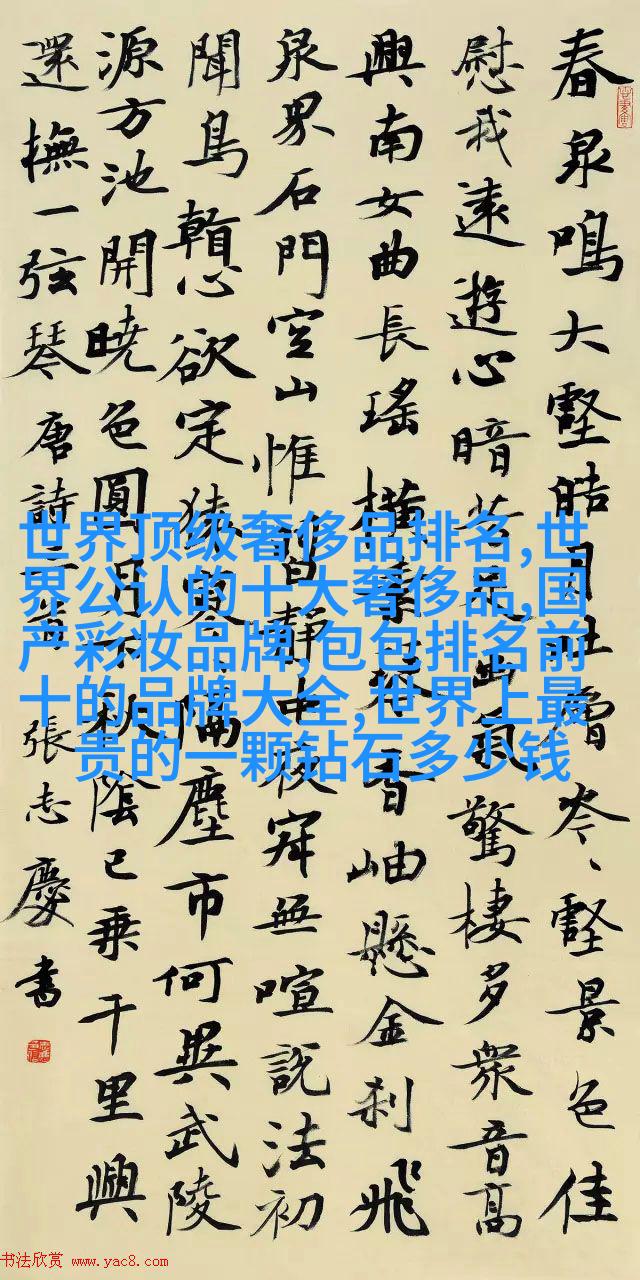 春泉鳴大壑皓月吐層岑、壑景色佳
慰我遠遊心暗芳足幽氣驚棲多衆音高
興南女曲長瑤橫素琴香岫懸金刹飛
泉界石門空山惟習靜中夜寂無喧説法初
聞鳥心欲定猿寥、隔塵市何異武陵
源方池開曉色圓月下秋陰已乘千里興
還撫一弦琴唐詩三首張志慶書
世界顶级奢侈品排名,世
界公认的十大奢侈品,国
产彩妆品牌,包包排名前
十的品牌大全,世界上最
贵的一颗钻石多少钱
书法欣赏 www.yac8.com